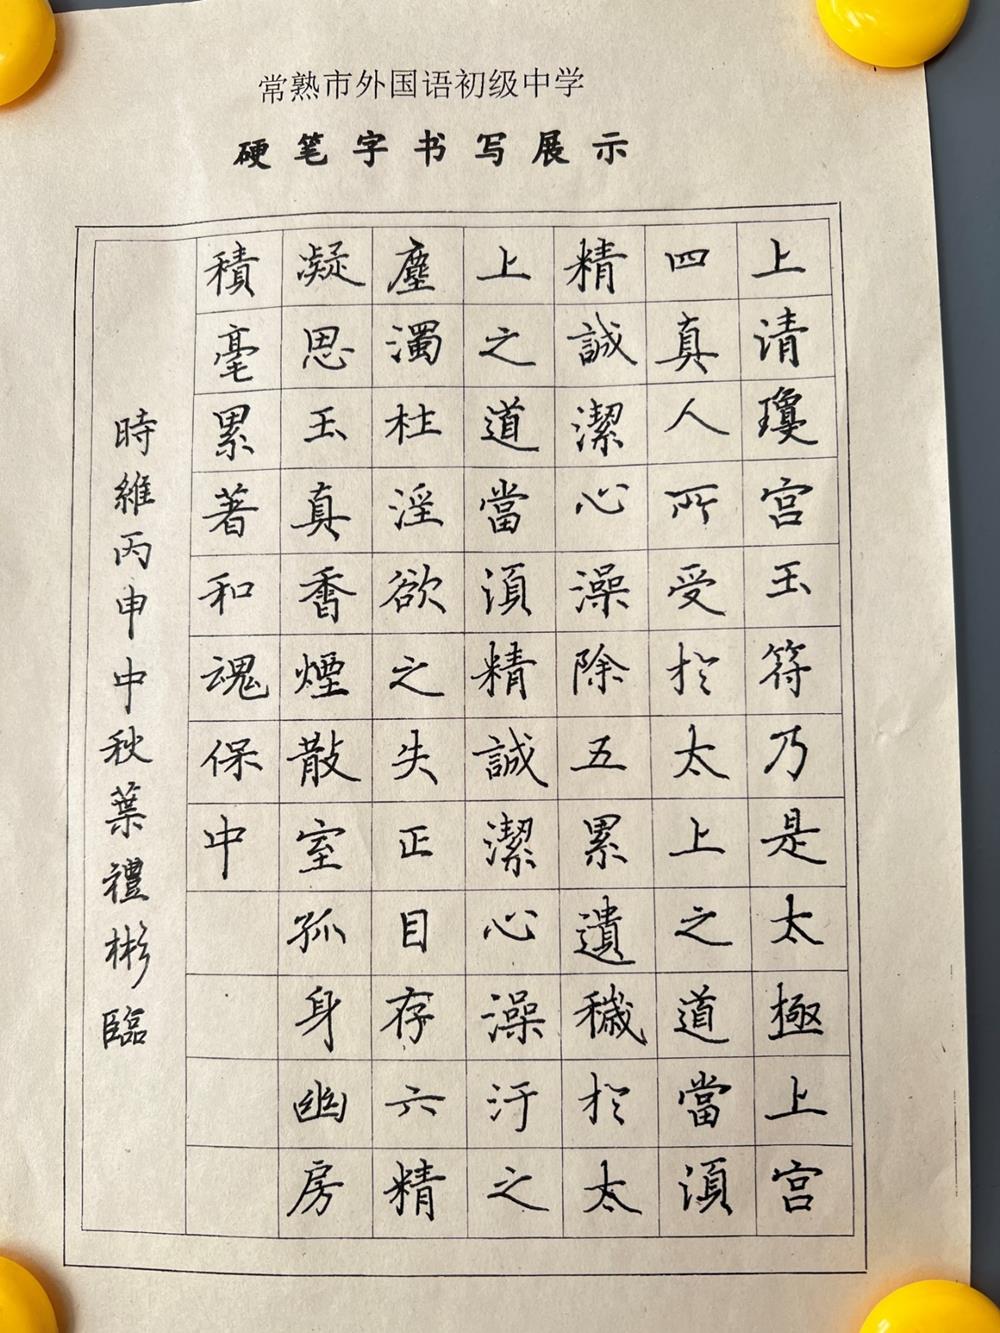 常熟市外国语初级中学
硬笔字书写展示
上清瓊宫玉符乃是太極上宫
四真人所受於太上之道當須
精誠潔心澡除五累遺穢於太
上之道當須精誠潔心澡汙之
塵濁柱淫欲之失正目存六精
凝思玉真香煙散室孤身幽房
積毫累著和魂保中
時維丙申中秋葉禮彬臨